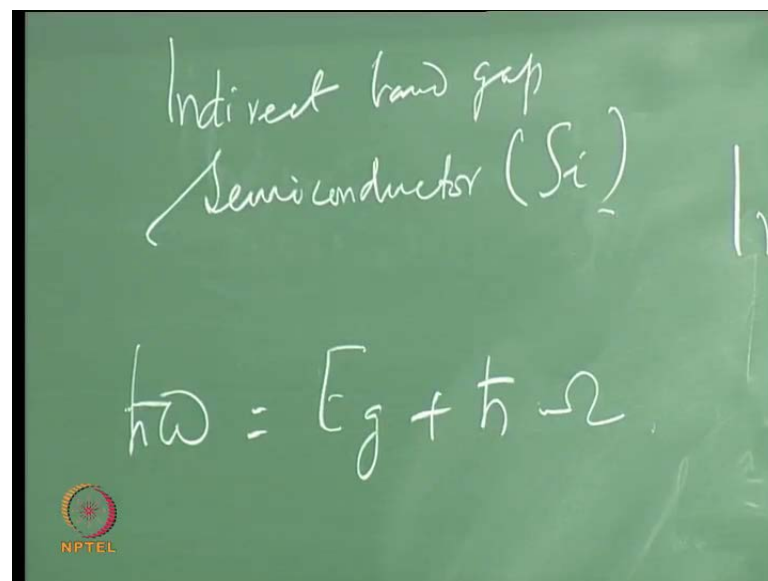 Indirect band gap
Semiconductor (Si)
ħω = Eg + ħ Ω
NPTEL